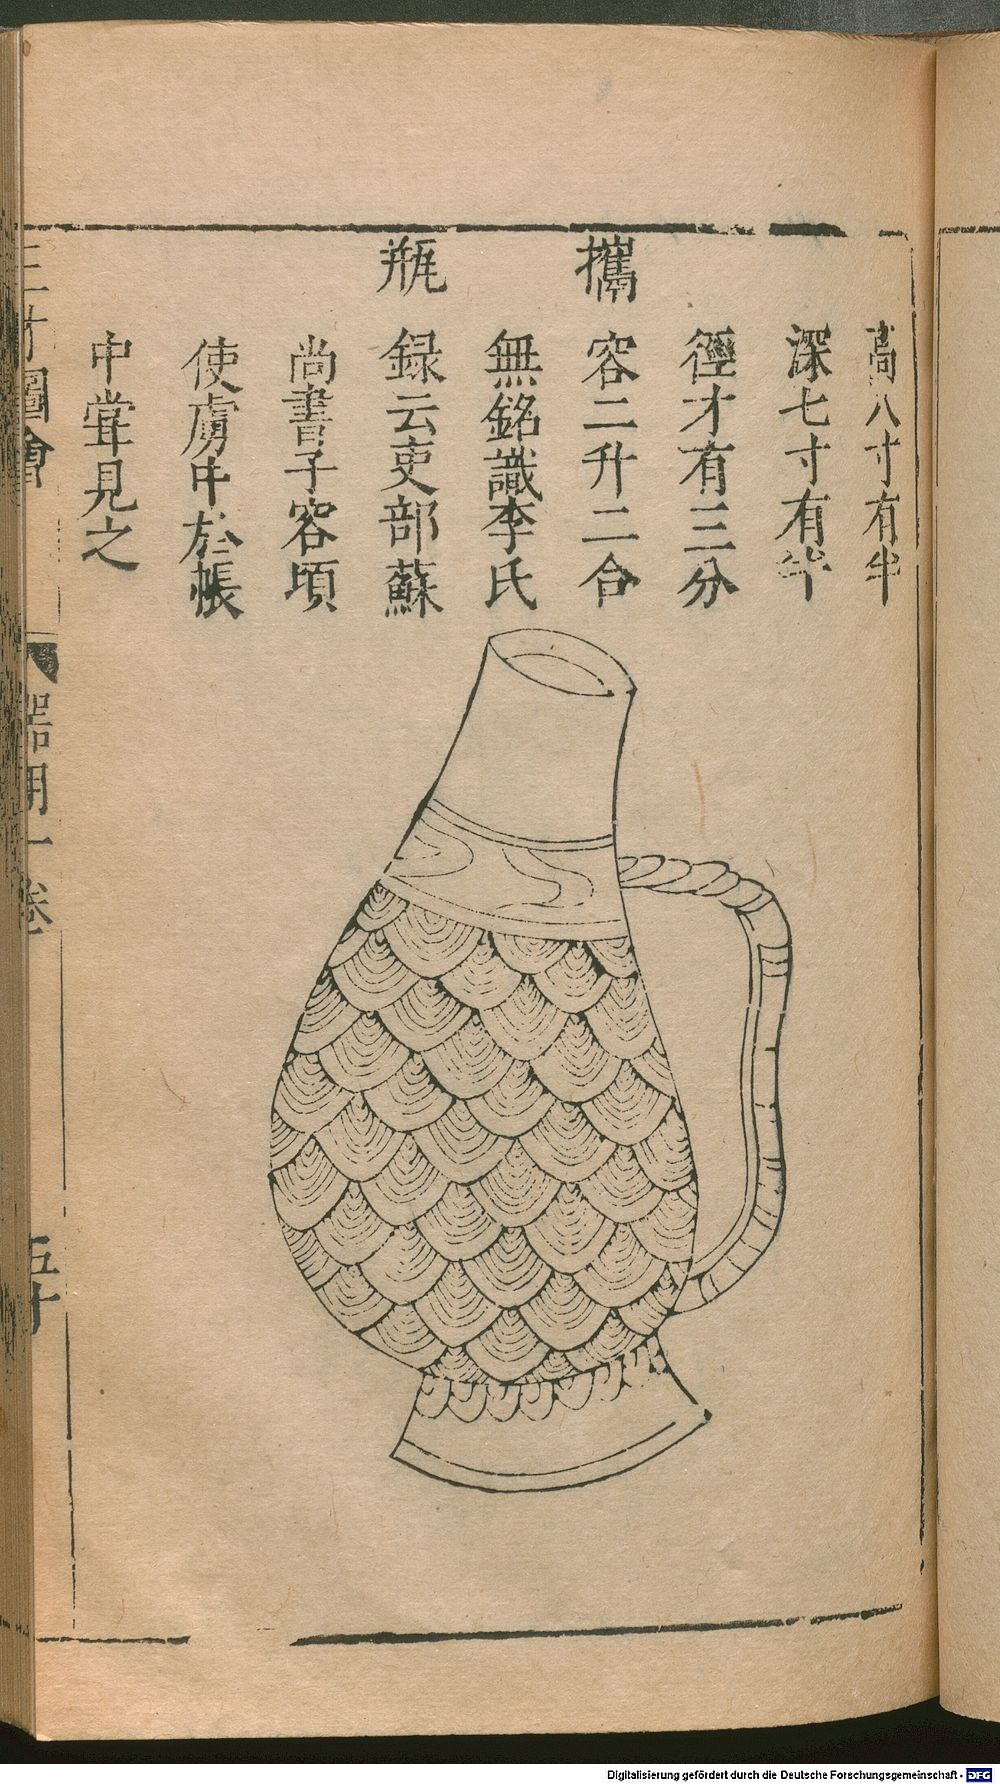 高八寸有半
深七寸有半
徑才有三分
攜
容二升二合
無銘識李氏
瓶
録云吏部蘇
尚書子容頃
使虜中於帳
中甞見之
三才圖會
器用一卷
五十
Digitalisierung gefördert durch die Deutsche Forschungsgemeinschaft - DFG